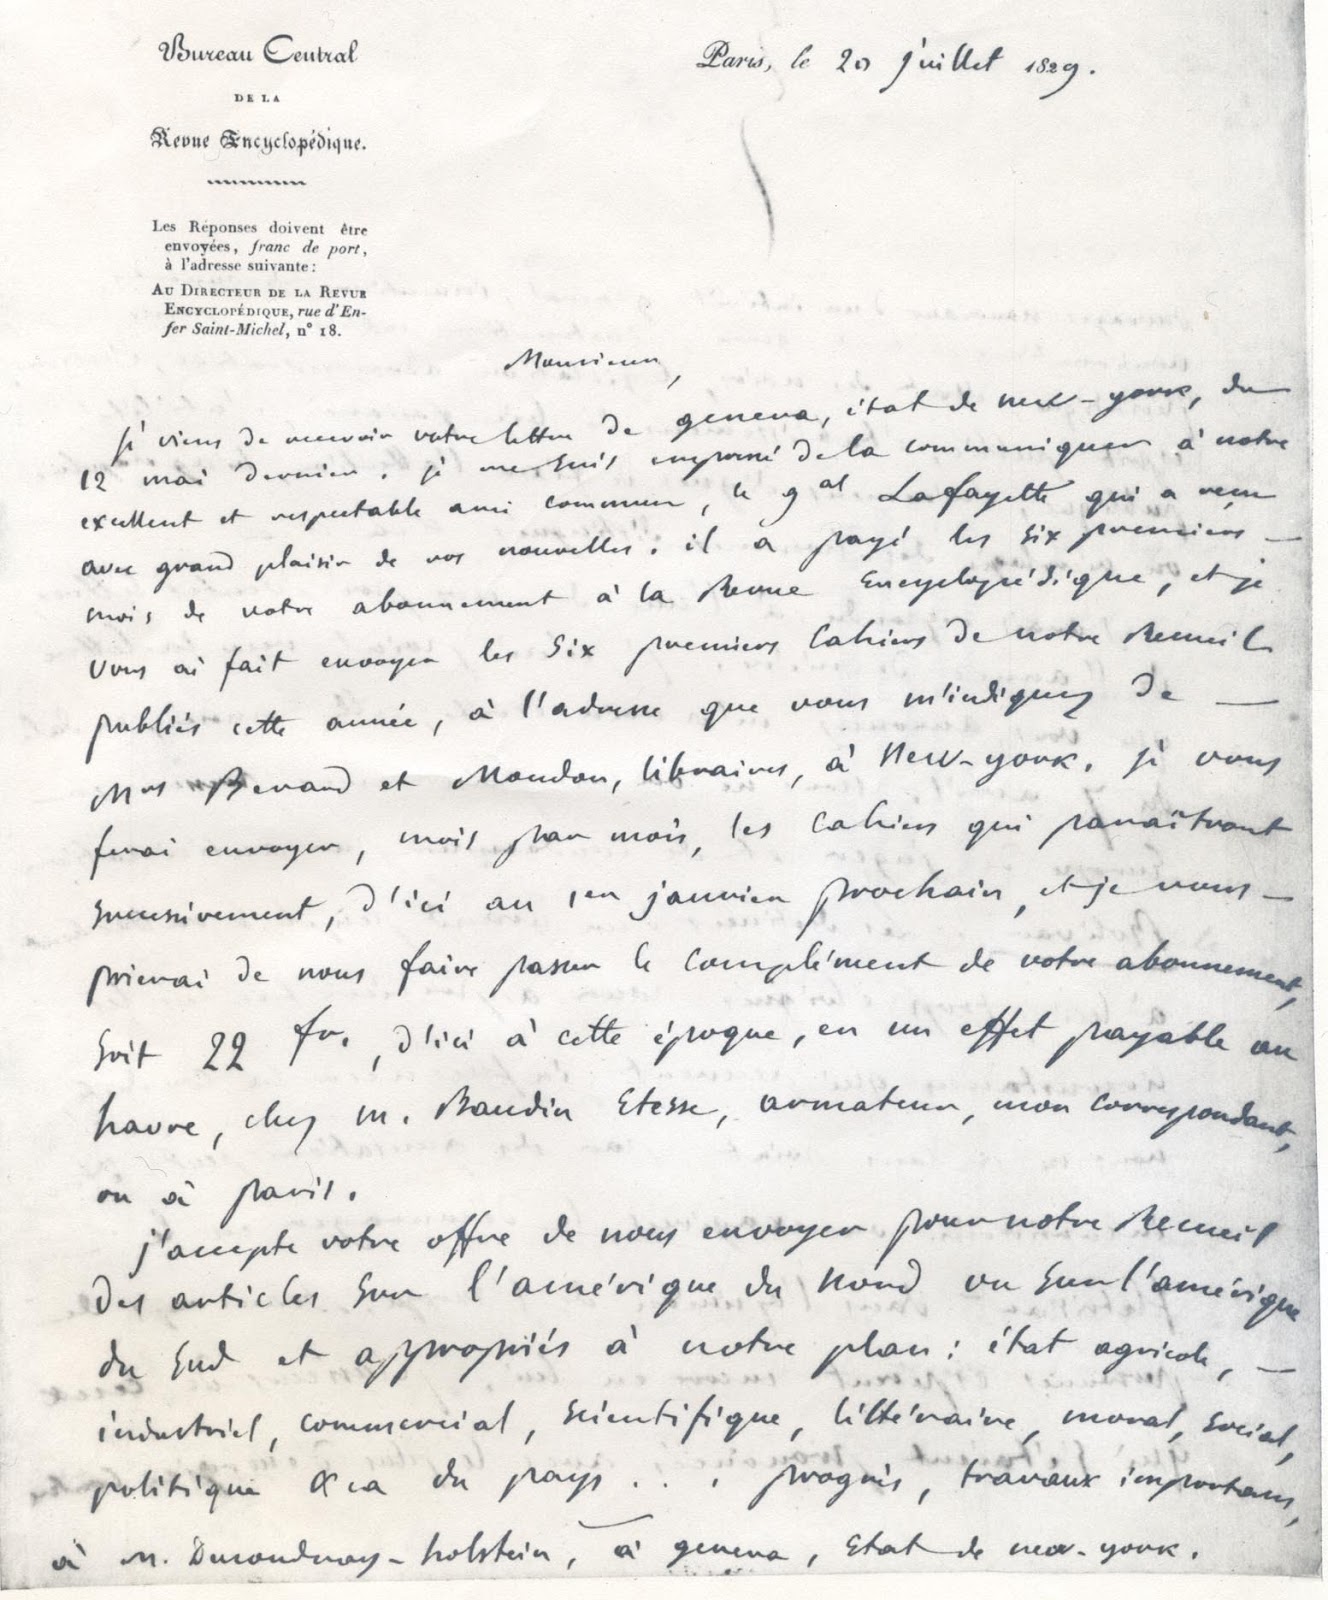 Bureau Central
DE LA
Revue Encyclopédique.
Les Réponses doivent être
envoyées, franc de port,
à l'adresse suivante :
AU DIRECTEUR DE LA REVUE
ENCYCLOPÉDIQUE, rue d'En-
fer Saint-Michel, n° 18.
Paris, le 20 juillet 1829.
Monsieur,
je viens de recevoir votre lettre de geneva, état de new-york, du
12 mai dernier. je me suis empressé de la communiquer à notre
excellent et respectable ami commun, le gal Lafayette qui a reçu
avec grand plaisir de vos nouvelles. il a payé les six premiers —
mois de votre abonnement à la Revue Encyclopédique, et je
vous ai fait envoyer les six premiers Cahiers de notre Recueil
publiés cette année, à l'adresse que vous m'indiquez de —
Mrs Berard et Mondon, libraires, à New-york. je vous
ferai envoyer, mois par mois, les Cahiers qui paraîtront
successivement, d'ici au 1er janvier prochain, et je vous —
prierai de nous faire passer le complément de votre abonnement,
soit 22 fr., d'ici à cette époque, en un effet payable au
havre, chez m. Baudin Etesse, armateur, mon correspondant,
ou à paris.
j'accepte votre offre de nous envoyer pour notre Recueil
des articles sur l'amérique du Nord ou sur l'amérique
du Sud et appropriés à notre plan : état agricole, —
industriel, commercial, scientifique, littéraire, moral, social,
politique &ca du pays . . . progrès, travaux importans,
à M. Ducoudray-holstein, à geneva, Etat de new-york.